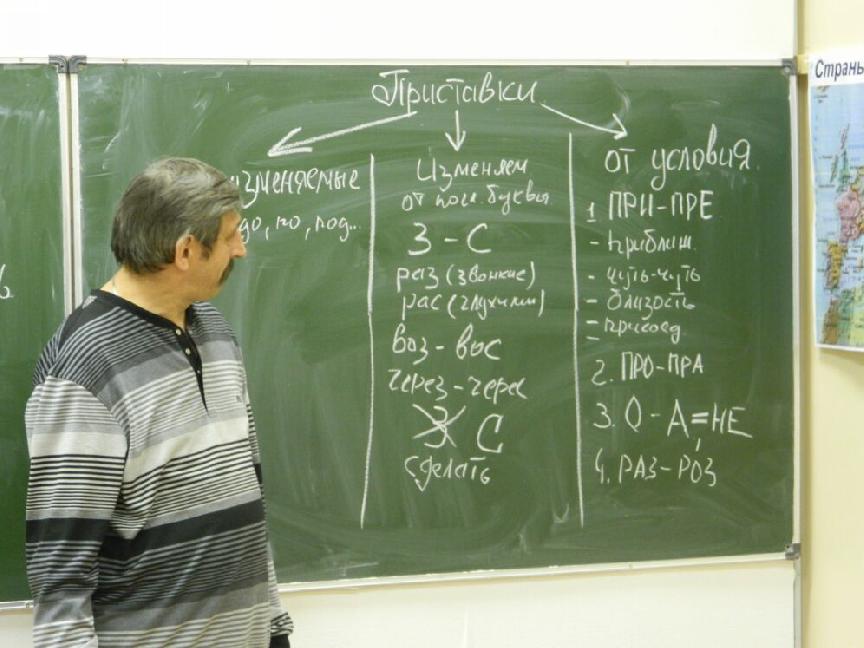 Приставки
изменяемые
до, по, под...
Изменяем
от посл. буквы
З - С
раз (звонкие)
рас (глухими)
воз - вос
через - черес
З С
сделать
от условия.
1 ПРИ-ПРЕ
- приближ.
- чуть-чуть
- близость
- присоед.
2. ПРО-ПРА
3. О - А = НЕ
4. РАЗ-РОЗ
Страны